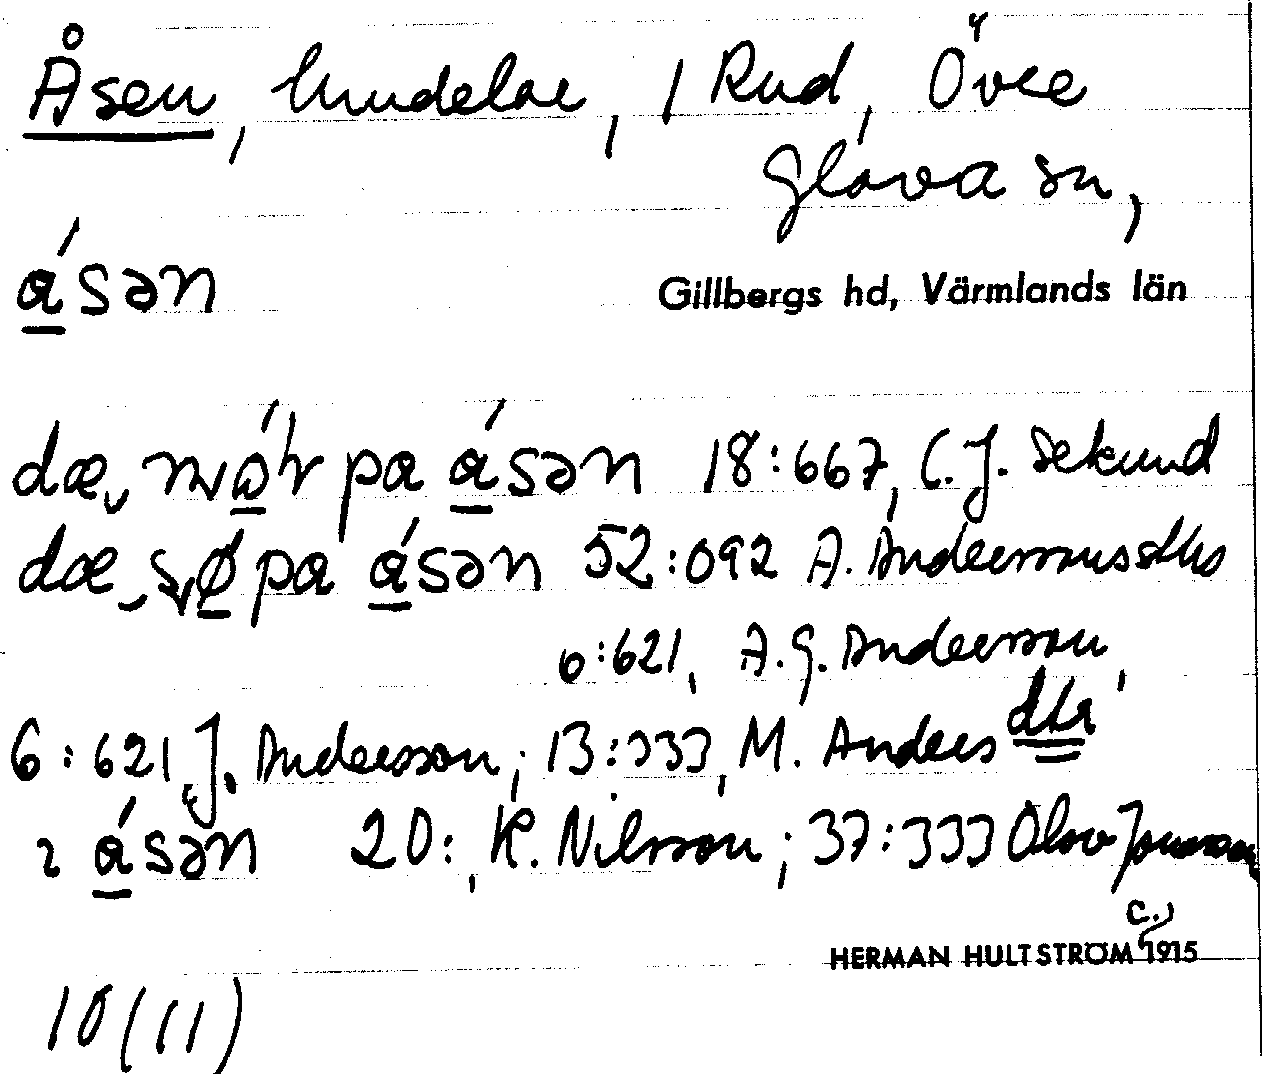 Åsen, hmdelar, / Rud, Övre
Glava sn,
ásən
Gillbergs hd, Värmlands län
dæ, pa ásən 18:667, C. J. Sekund
dæ pa ásən 52:092 A.
6:621, A. G. Andersson,
6:621, J. Andersson; 13:333, M. Anders dtr
ı ásən 20:, K. Nilsson; 37:333 Olov Jonsson
HERMAN HULTSTRÖM c., 1915
10(11)